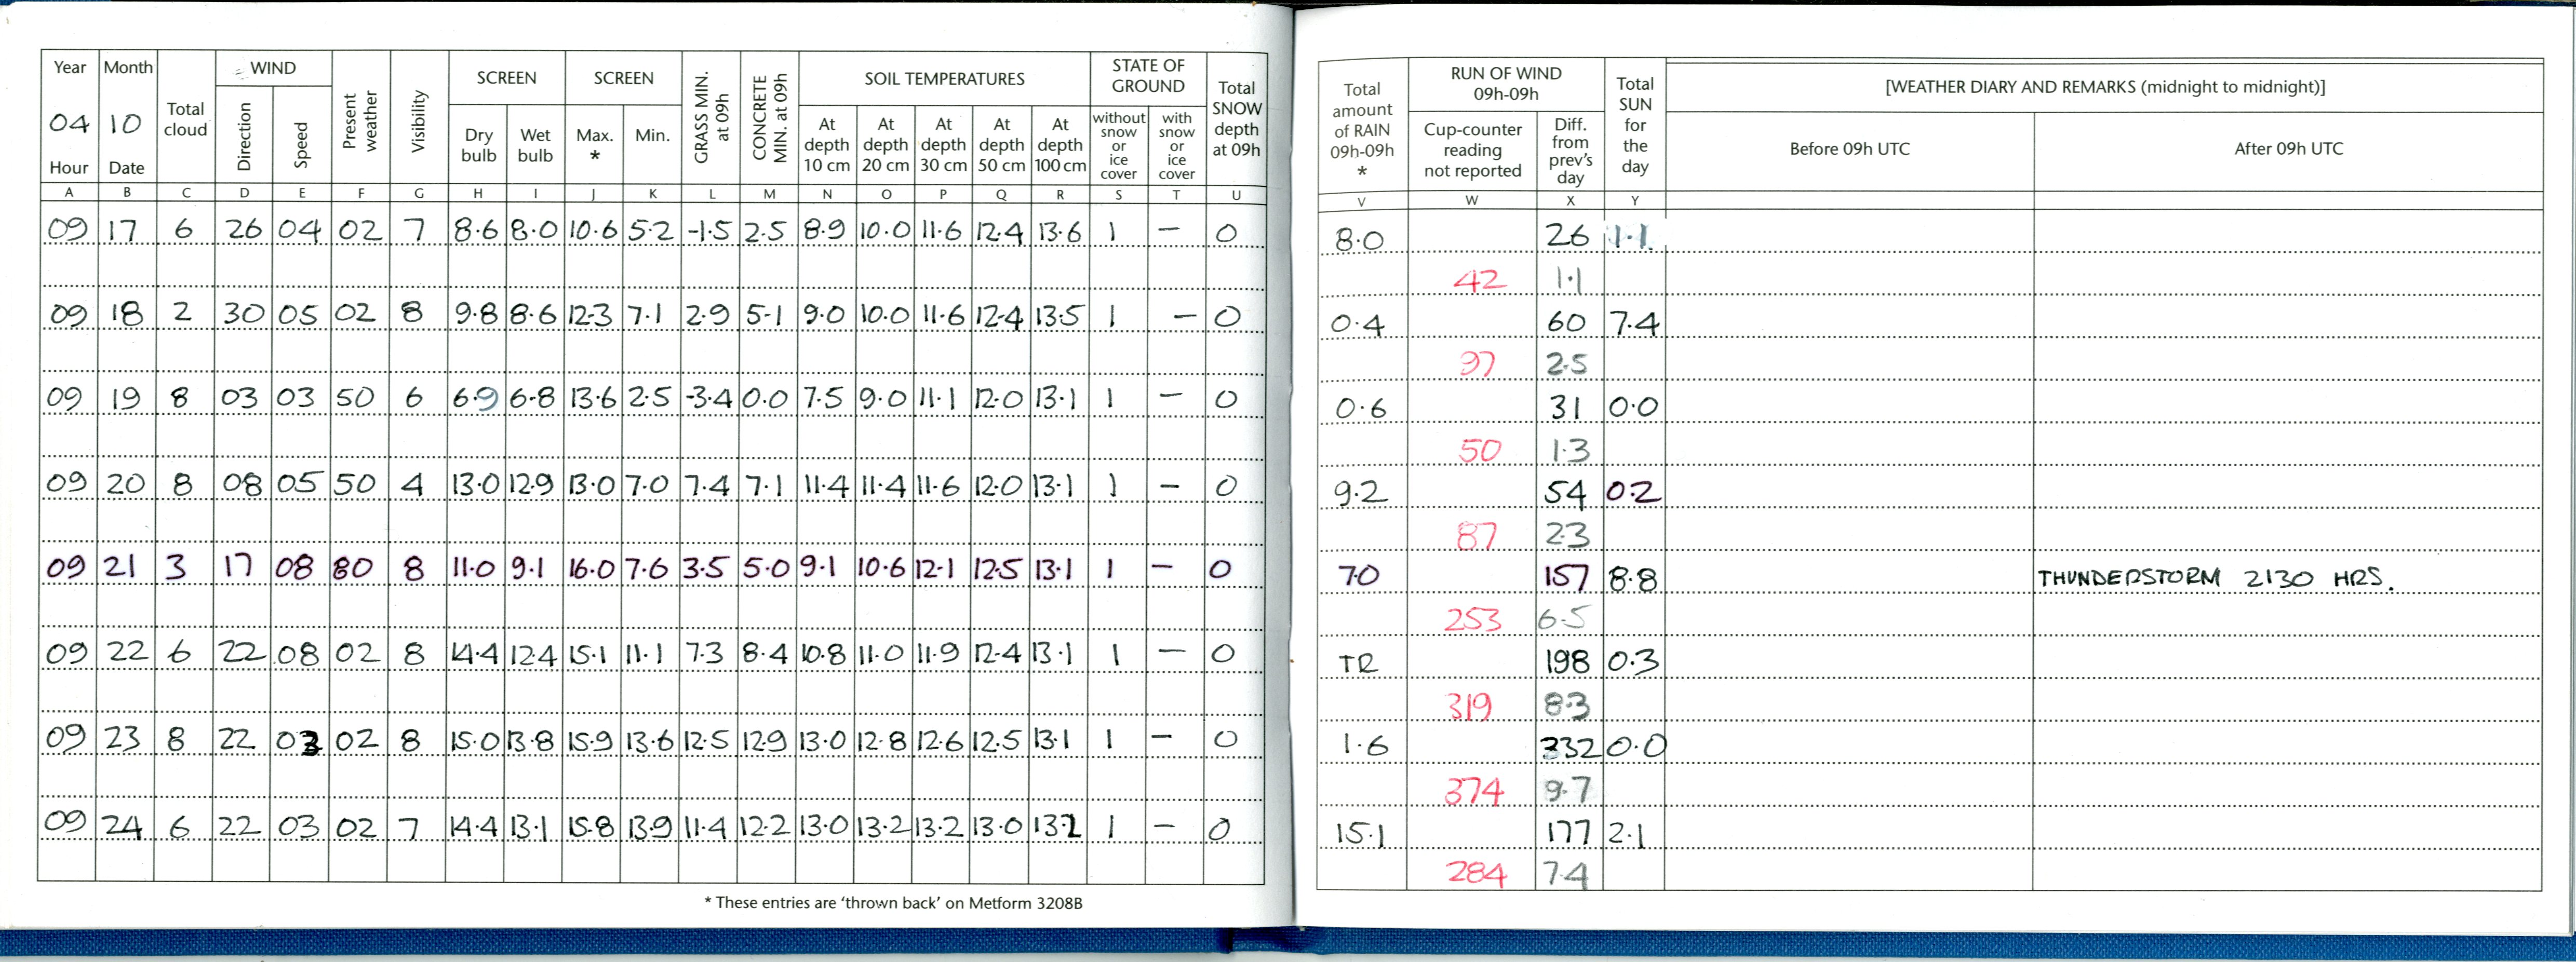 Year Month Total cloud WIND Present weather Visibility SCREEN SCREEN GRASS MIN. at 09h CONCRETE MIN. at 09h SOIL TEMPERATURES STATE OF GROUND Total SNOW depth at 09h
04 10 Direction Speed Dry bulb Wet bulb Max. * Min. At depth 10 cm At depth 20 cm At depth 30 cm At depth 50 cm At depth 100 cm without snow or ice cover with snow or ice cover
Hour Date
A B C D E F G H I J K L M N O P Q R S T U
09 17 6 26 04 02 7 8.6 8.0 10.6 5.2 -1.5 2.5 8.9 10.0 11.6 12.4 13.6 1 – 0
09 18 2 30 05 02 8 9.8 8.6 12.3 7.1 2.9 5.1 9.0 10.0 11.6 12.4 13.5 1 – 0
09 19 8 03 03 50 6 6.9 6.8 13.6 2.5 -3.4 0.0 7.5 9.0 11.1 12.0 13.1 1 – 0
09 20 8 08 05 50 4 13.0 12.9 13.0 7.0 7.4 7.1 11.4 11.4 11.6 12.0 13.1 1 – 0
09 21 3 17 08 80 8 11.0 9.1 16.0 7.6 3.5 5.0 9.1 10.6 12.1 12.5 13.1 1 – 0
09 22 6 22 08 02 8 14.4 12.4 15.1 11.1 7.3 8.4 10.8 11.0 11.9 12.4 13.1 1 – 0
09 23 8 22 03 02 8 15.0 13.8 15.9 13.6 12.5 12.9 13.0 12.8 12.6 12.5 13.1 1 – 0
09 24 6 22 03 02 7 14.4 13.1 15.8 13.9 11.4 12.2 13.0 13.2 13.2 13.0 13.2 1 – 0
* These entries are ‘thrown back’ on Metform 3208B
Total amount of RAIN 09h-09h * RUN OF WIND 09h-09h Total SUN for the day [WEATHER DIARY AND REMARKS (midnight to midnight)]
Cup-counter reading not reported Diff. from prev's day Before 09h UTC After 09h UTC
V W X Y
8.0 26 1.1
42 1.1
0.4 60 7.4
97 2.5
0.6 31 0.0
50 1.3
9.2 54 0.2
87 2.3
7.0 157 8.8 THUNDERSTORM 2130 HRS.
253 6.5
TR 198 0.3
319 8.3
1.6 332 0.0
374 9.7
15.1 177 2.1
284 7.4